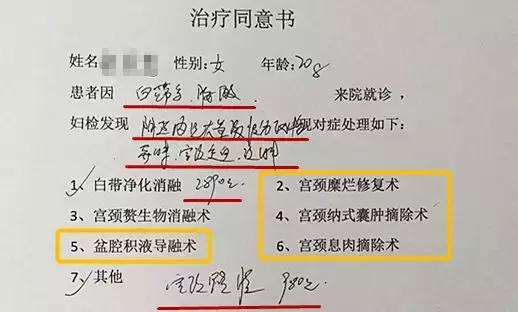 治疗同意书
姓名 性别:女 年龄:20岁
患者因 白带多、 来院就诊，
妇检发现 阴道内 大量 分泌物 现对症处理如下:
异味、宫颈
1、白带净化消融 2890元 2、宫颈糜烂修复术
3、宫颈赘生物消融术 4、宫颈纳式囊肿摘除术
5、盆腔积液导融术 6、宫颈息肉摘除术
7、其他 980元